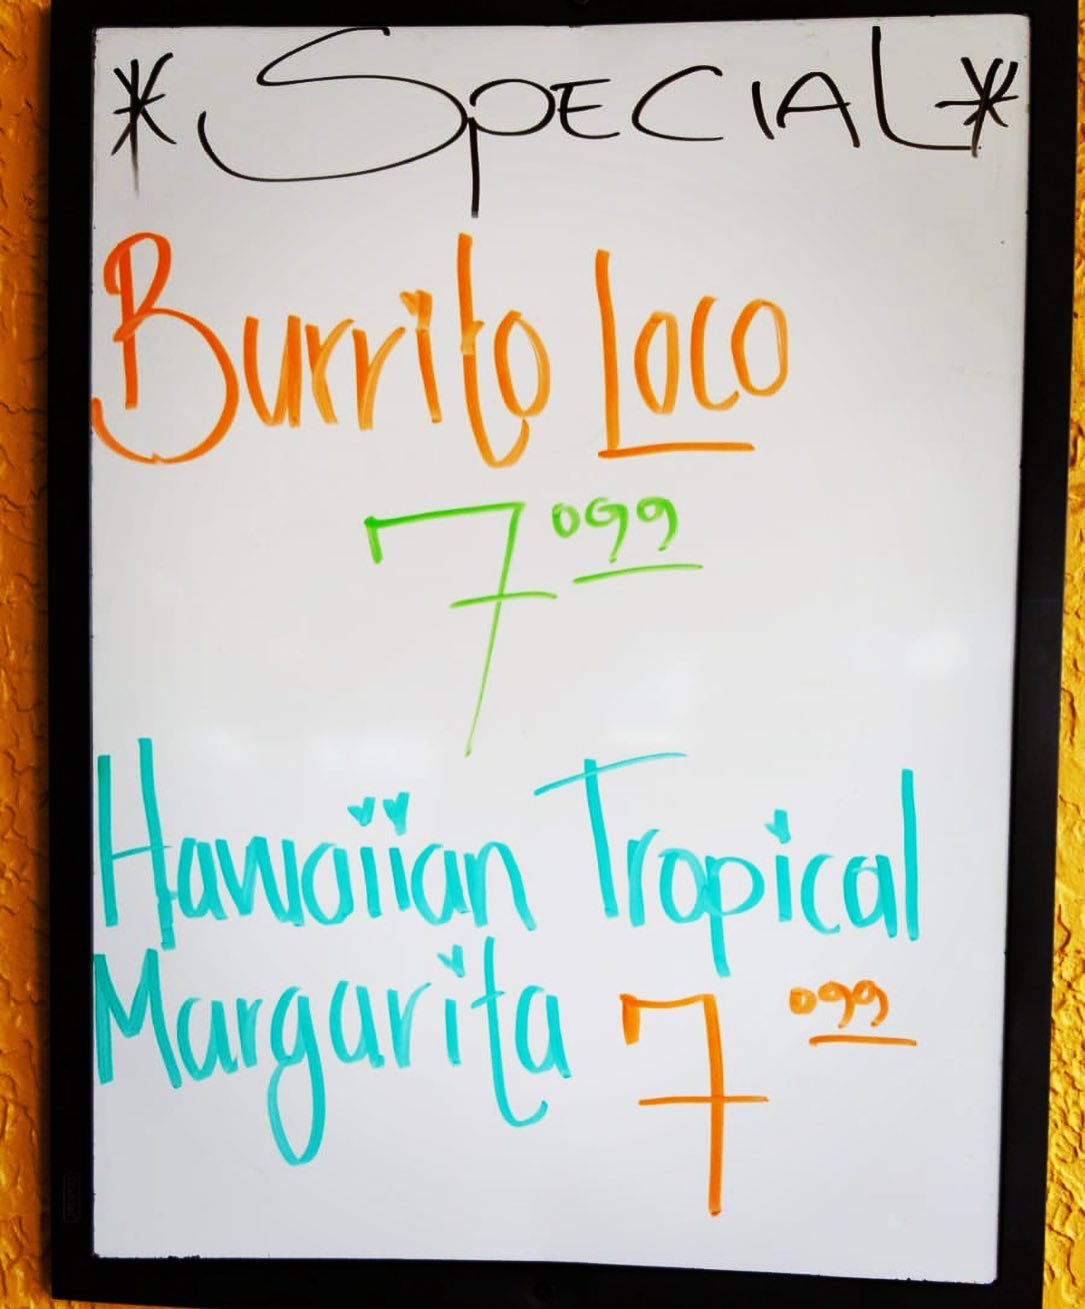 *SPECIAL*
Burrito Loco
7.99
Hawaiian Tropical
Margarita 7.99